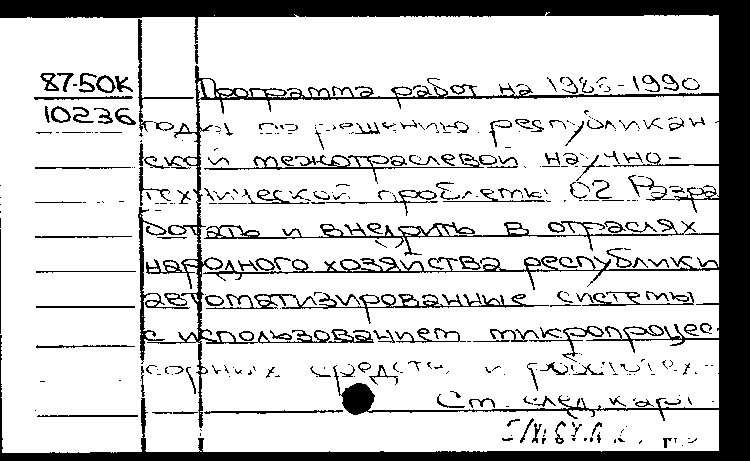 87-50К
Программа работ на 1986-1990
10236
годы по решению республикан-
ской межотраслевой научно-
технической проблемы 02 Разра
ботать и внедрить в отраслях
народного хозяйства республики
автоматизированные системы
с использованием микропроцес-
сорных средств и робототех-
См. след. карт.